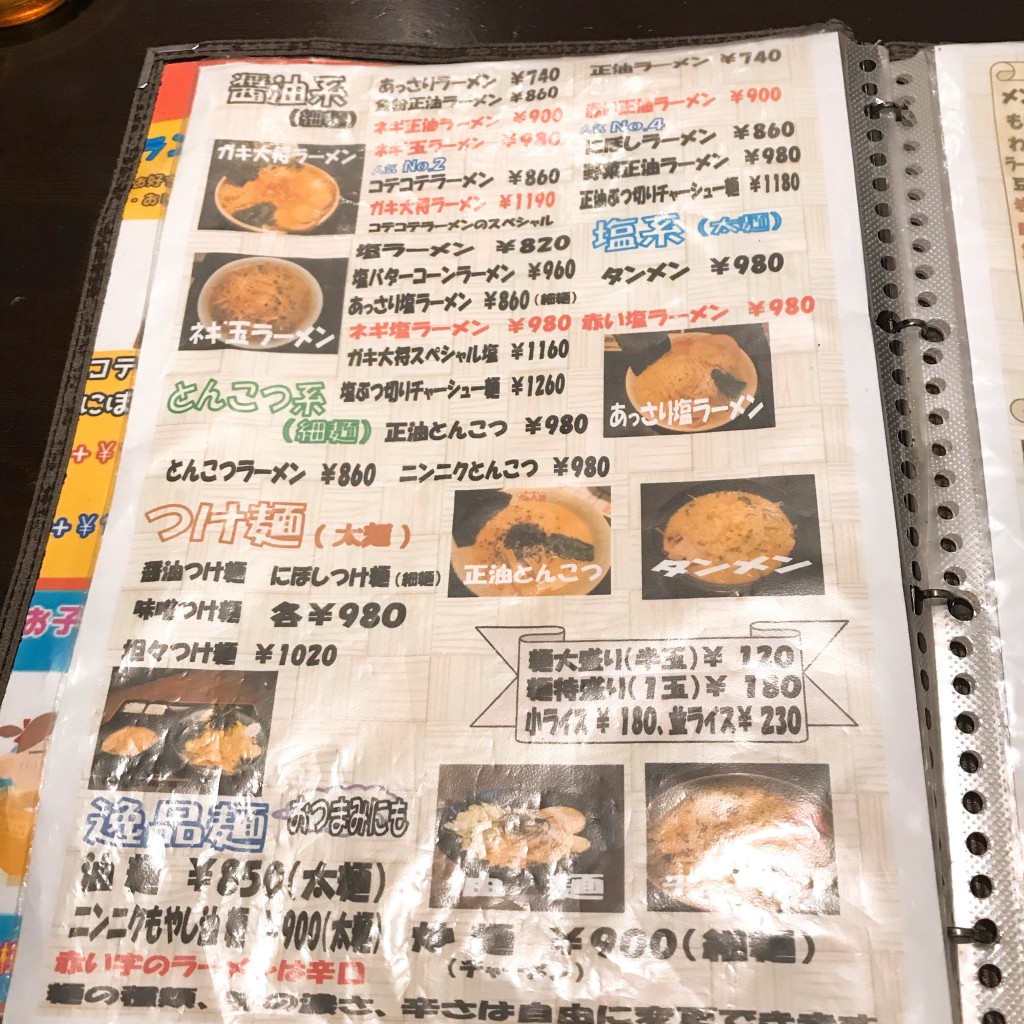 醤油系
(細麺)
あっさりラーメン ¥740
正油ラーメン ¥740
正油ラーメン ¥860
ネギ正油ラーメン ¥900
赤い正油ラーメン ¥900
ネギ玉ラーメン ¥980
人気 No.4
にぼしラーメン ¥860
人気 No.2
コテコテラーメン ¥860
野菜正油ラーメン ¥980
ガキ大将ラーメン ¥1190
正油ぶつ切りチャーシュー麺 ¥1180
コテコテラーメンのスペシャル
ガキ大将ラーメン
塩系(太麺)
塩ラーメン ¥820
塩バターコーンラーメン ¥960
タンメン ¥980
あっさり塩ラーメン ¥860(細麺)
ネギ塩ラーメン ¥980
赤い塩ラーメン ¥980
ガキ大将スペシャル塩 ¥1160
塩ぶつ切りチャーシュー麺 ¥1260
ネギ玉ラーメン
あっさり塩ラーメン
とんこつ系
(細麺)
正油とんこつ ¥980
とんこつラーメン ¥860
ニンニクとんこつ ¥980
つけ麺(太麺)
醤油つけ麺 にぼしつけ麺(細麺)
味噌つけ麺 各¥980
坦々つけ麺 ¥1020
正油とんこつ
タンメン
麺大盛り(半玉)¥ 120
麺特盛り(1玉)¥ 180
小ライス ¥ 180、並ライス¥ 230
逸品麺
おつまみにも
油麺 ¥850(太麺)
ニンニクもやし油麺 900(太麺)
炒麺 ¥900(細麺)
(チャーメン)
油麺
赤い字のラーメンは辛口
麺の種類、味の濃さ、辛さは自由に変更できます
コテ
にぼ
お子